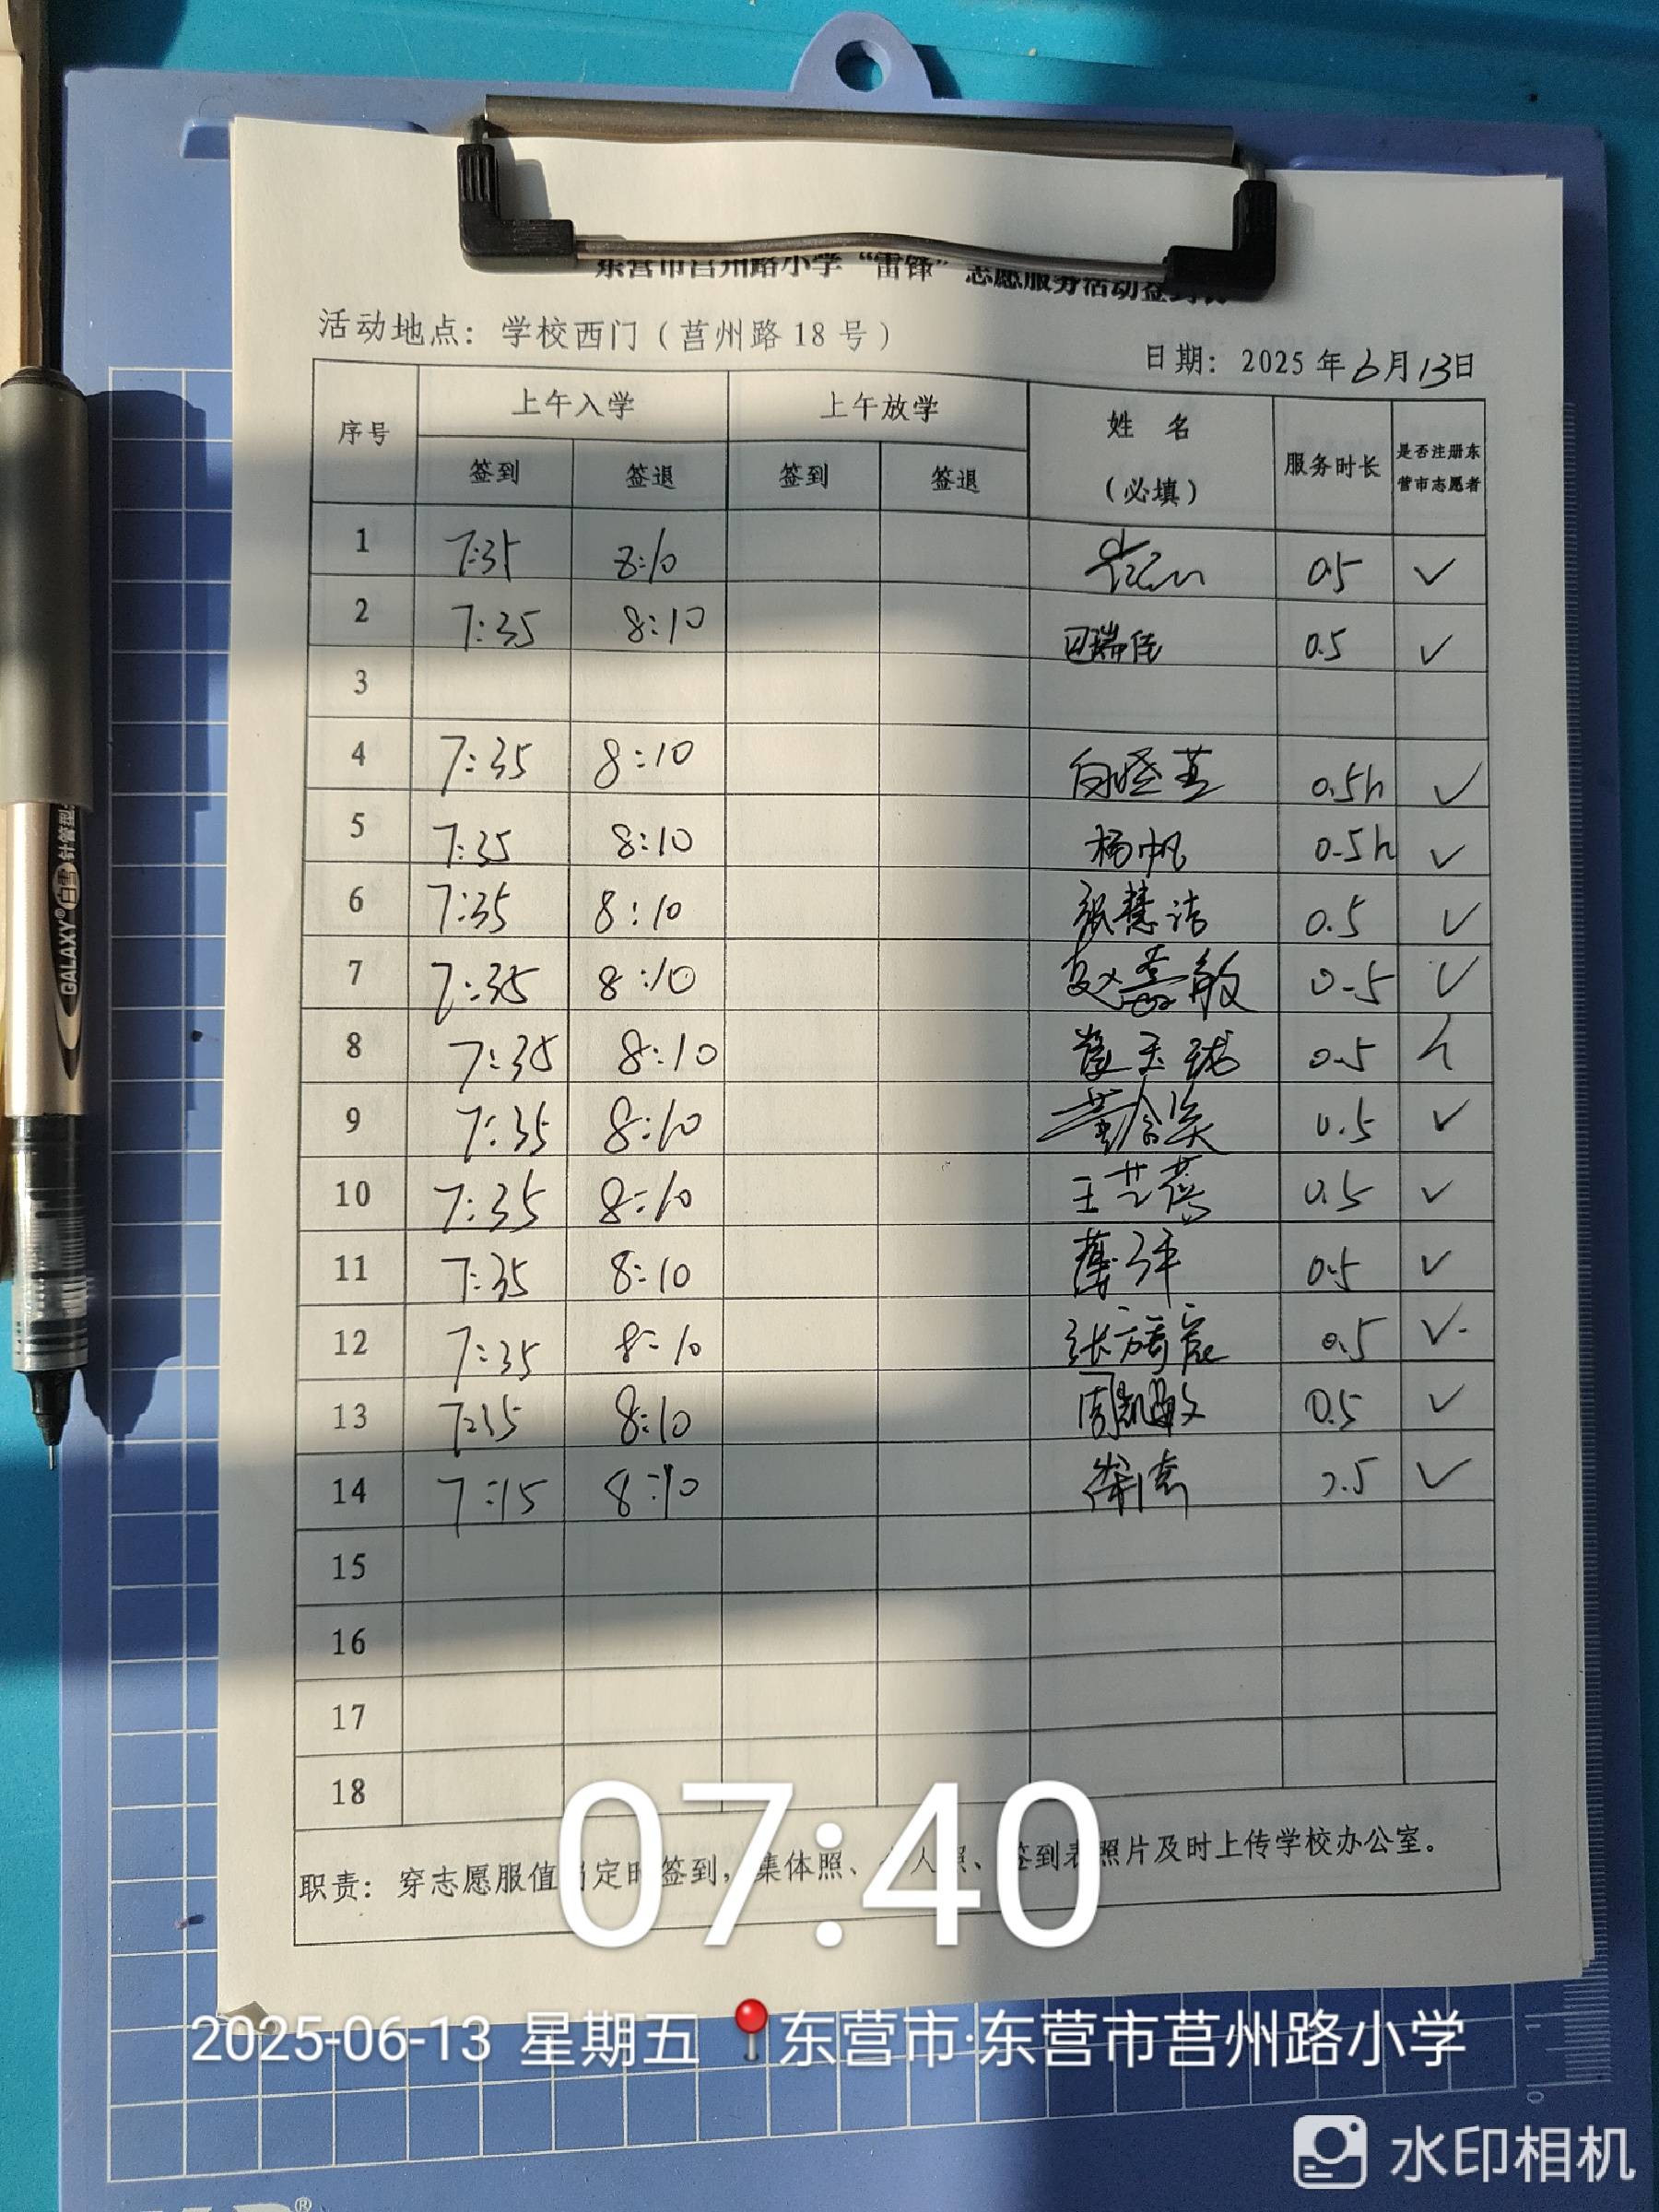 东营市莒州路小学“雷锋”志愿服务活动签到表
活动地点：学校西门（莒州路18号）
日期：2025年6月13日
序号 上午入学 上午放学 姓名（必填） 服务时长 是否注册东营市志愿者
签到 签退 签到 签退
1 7:35 8:10 0.5 ✓
2 7:35 8:10 巴瑞佳 0.5 ✓
3
4 7:35 8:10 0.5h ✓
5 7:35 8:10 杨帆 0.5h ✓
6 7:35 8:10 张慧洁 0.5 ✓
7 7:35 8:10 0.5 ✓
8 7:35 8:10 0.5
9 7:35 8:10 0.5 ✓
10 7:35 8:10 0.5 ✓
11 7:35 8:10 0.5 ✓
12 7:35 8:10 0.5 ✓
13 8:10 0.5 ✓
14 7:15 8:10 ✓
15
16
17
18
职责：穿志愿服值岗定时签到，集体照、个人照、签到表照片及时上传学校办公室。
07:40
2025-06-13 星期五 东营市·东营市莒州路小学
水印相机
GALAXY® 白雪 针管型